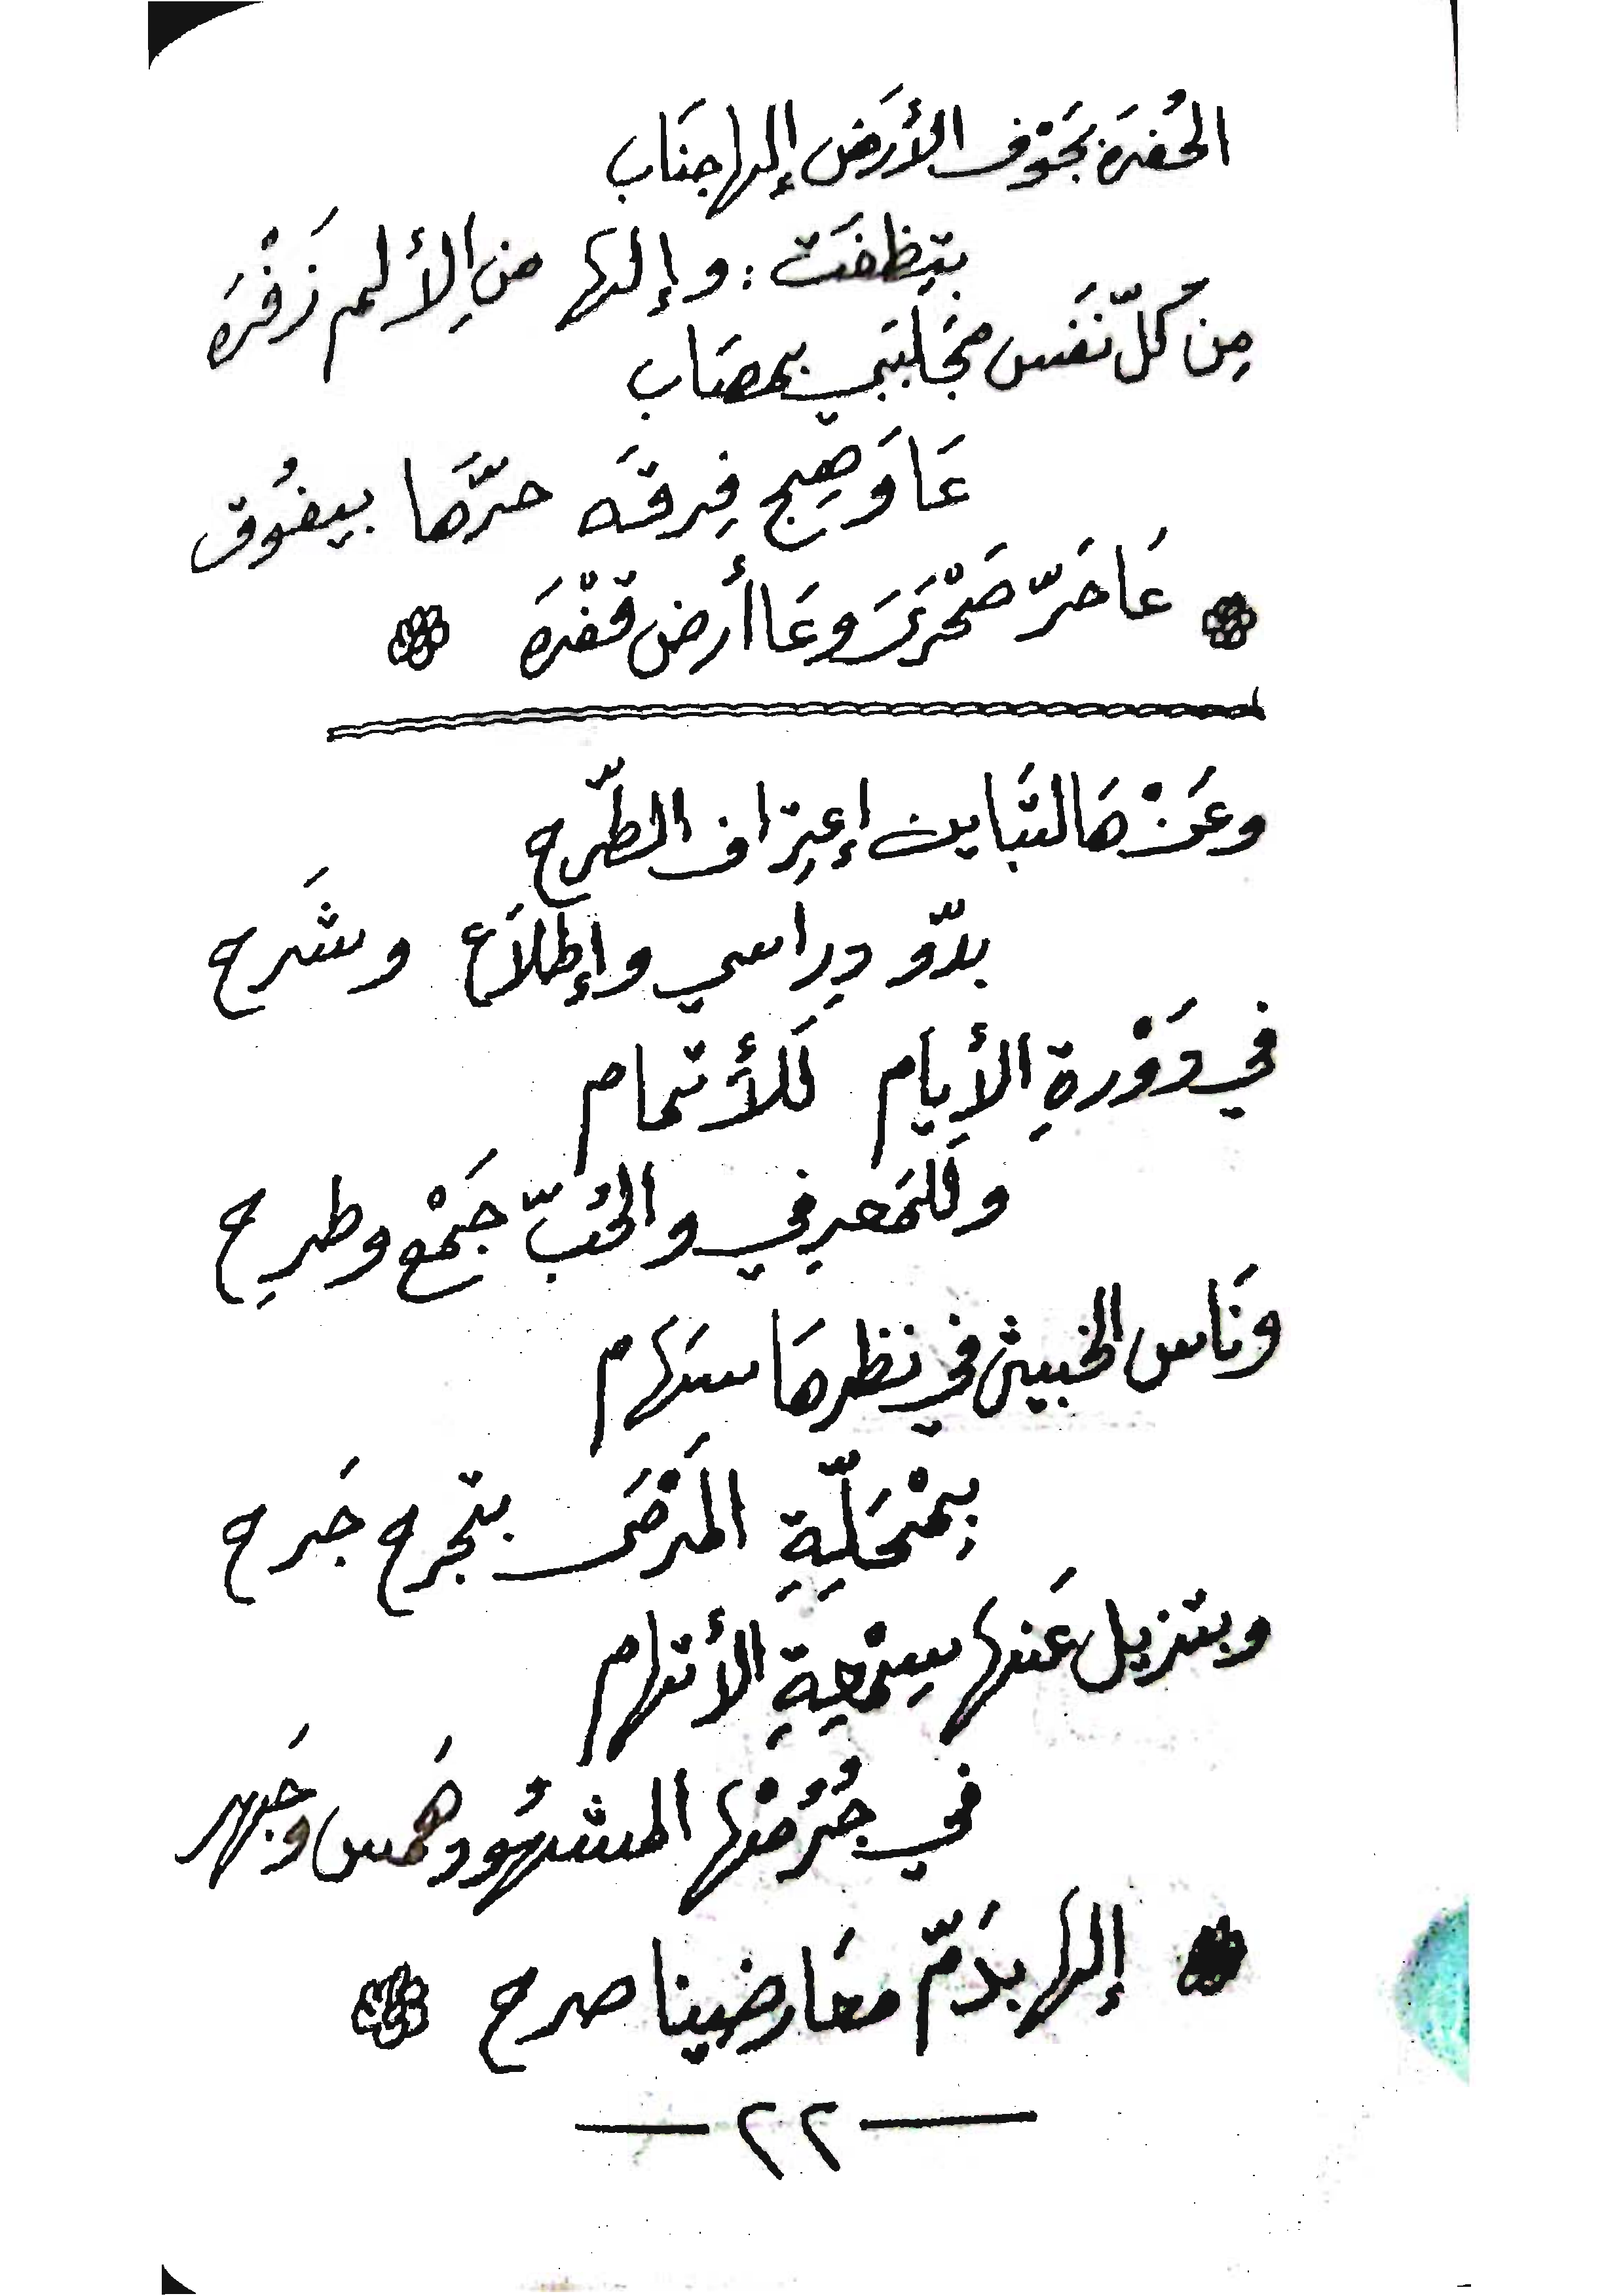 الحُفرَة بجَوْف الأرَض إلها جنَاب
بتِظخَت : وإلها منِ الألم زَفْرَه
مِن كُلّ نَفَس مجَلبَبي بمصَاب
عَا وَصِيج فِرقَه حرّهَا بيفُوق
عَا حَرّ صَحْرَىَ وعَا أرض قَفْرَه
وعَنْ هَالتَباين إعتِراف الطّرح
بدّو دِراسي وإطلاَع وشَرح
في دَوْرةِ الأيام لَلأتمام
ولَلمَعرِفي والحُبّ جَمْع وطرِح
ونَاس الخبيث في نظرهَا سهَام
بِمْحَلّيةِ المَرضَى بتجرح جَرح
وبتزيل عَنها سِمْعِيةِ الأتهام
في جُرُمْها المشهُود هَمس وجَهر
إلها بدَمّ معَارضينا صرح
— ٢٢ —